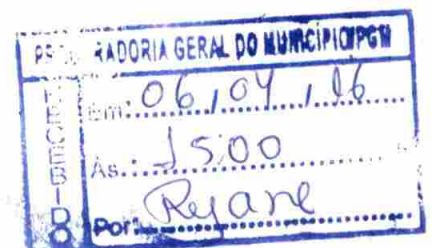 PROCURADORIA GERAL DO MUNICÍPIO/PGM
RECEBIDO
Em: 06, 04, 16
Às.: 15:00
Por: Rejane